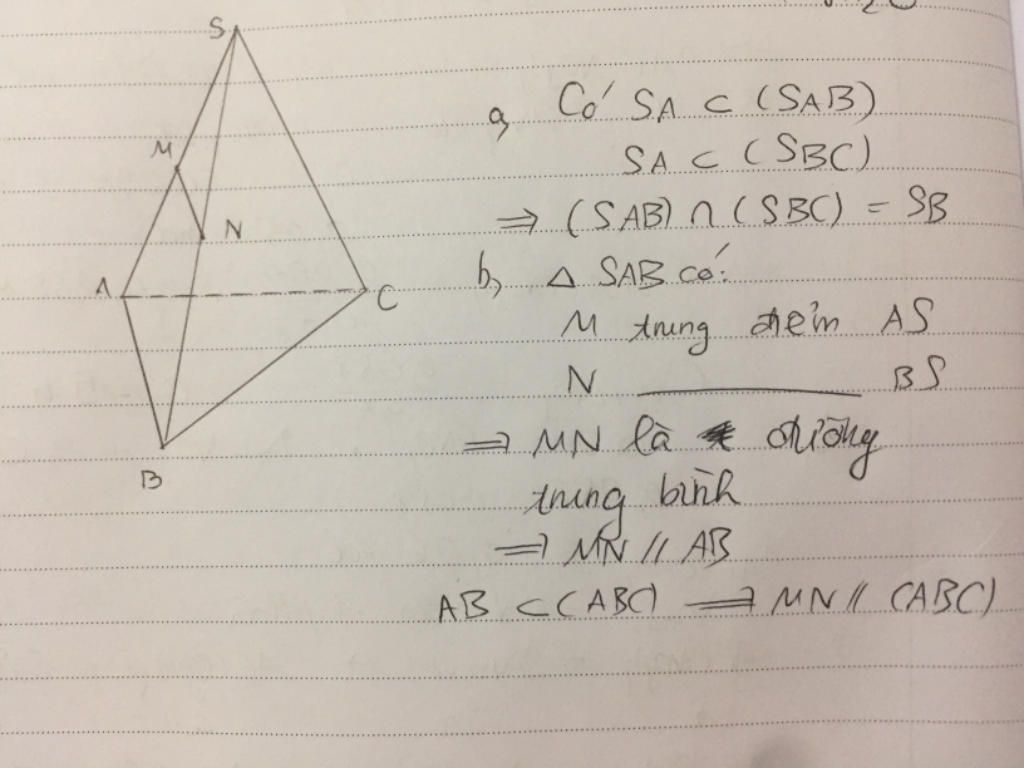 S
M
N
A
C
B
a, Có SA ⊂ (SAB)
SA ⊂ (SBC)
⇒ (SAB) ∩ (SBC) = SB
b, △ SAB có:
M trung điểm AS
N ———— BS
⇒ MN là đường
trung bình
⇒ MN // AB
AB ⊂ (ABC) ⇒ MN // (ABC)